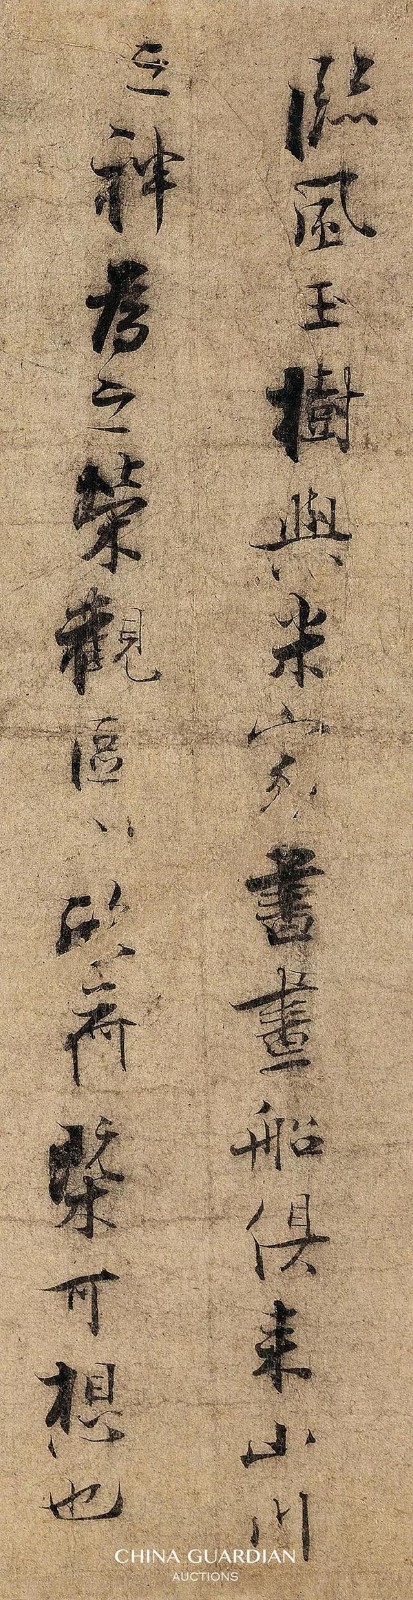 臨風玉樹與米家書畫船俱來山川
之神為之榮觀區〻欣荷槩可想也
CHINA GUARDIAN
AUCTIONS